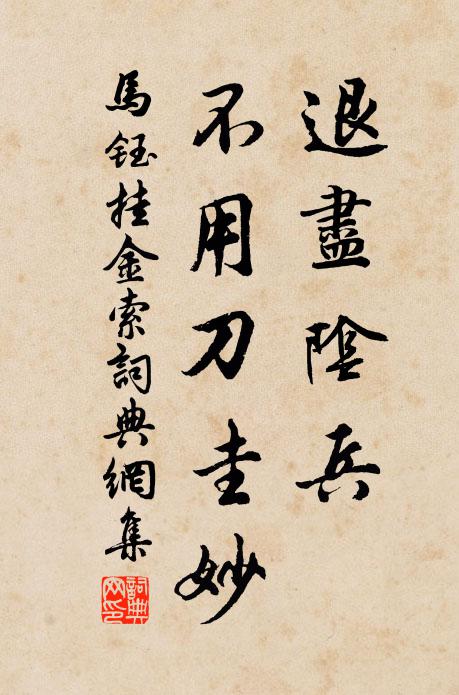 退盡陰兵
不用刀圭妙
馬鈺挂金索詞典網集
詞典網印